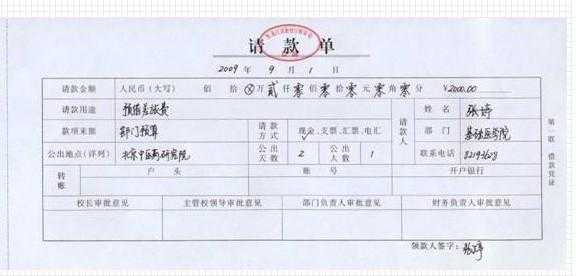 请款单
2009 年 9 月 1 日
请款金额 人民币(大写) 佰 拾 ⊗ 万 贰 仟 零 佰 零 拾 零 元 零 角 零 分 ¥2000.00
请款用途 预借差旅费 请款人 姓名
款项来源 部门预算 请款方式 现金、支票、汇票、电汇 部门 基础医学院
公出地点(详列) 北京中医药研究院 公出天数 2 公出人数 1 联系电话
转账 户头 账号 开户银行
校长审批意见 主管校领导审批意见 部门负责人审批意见 财务负责人审批意见
领款人签字:
第一联 借款凭证